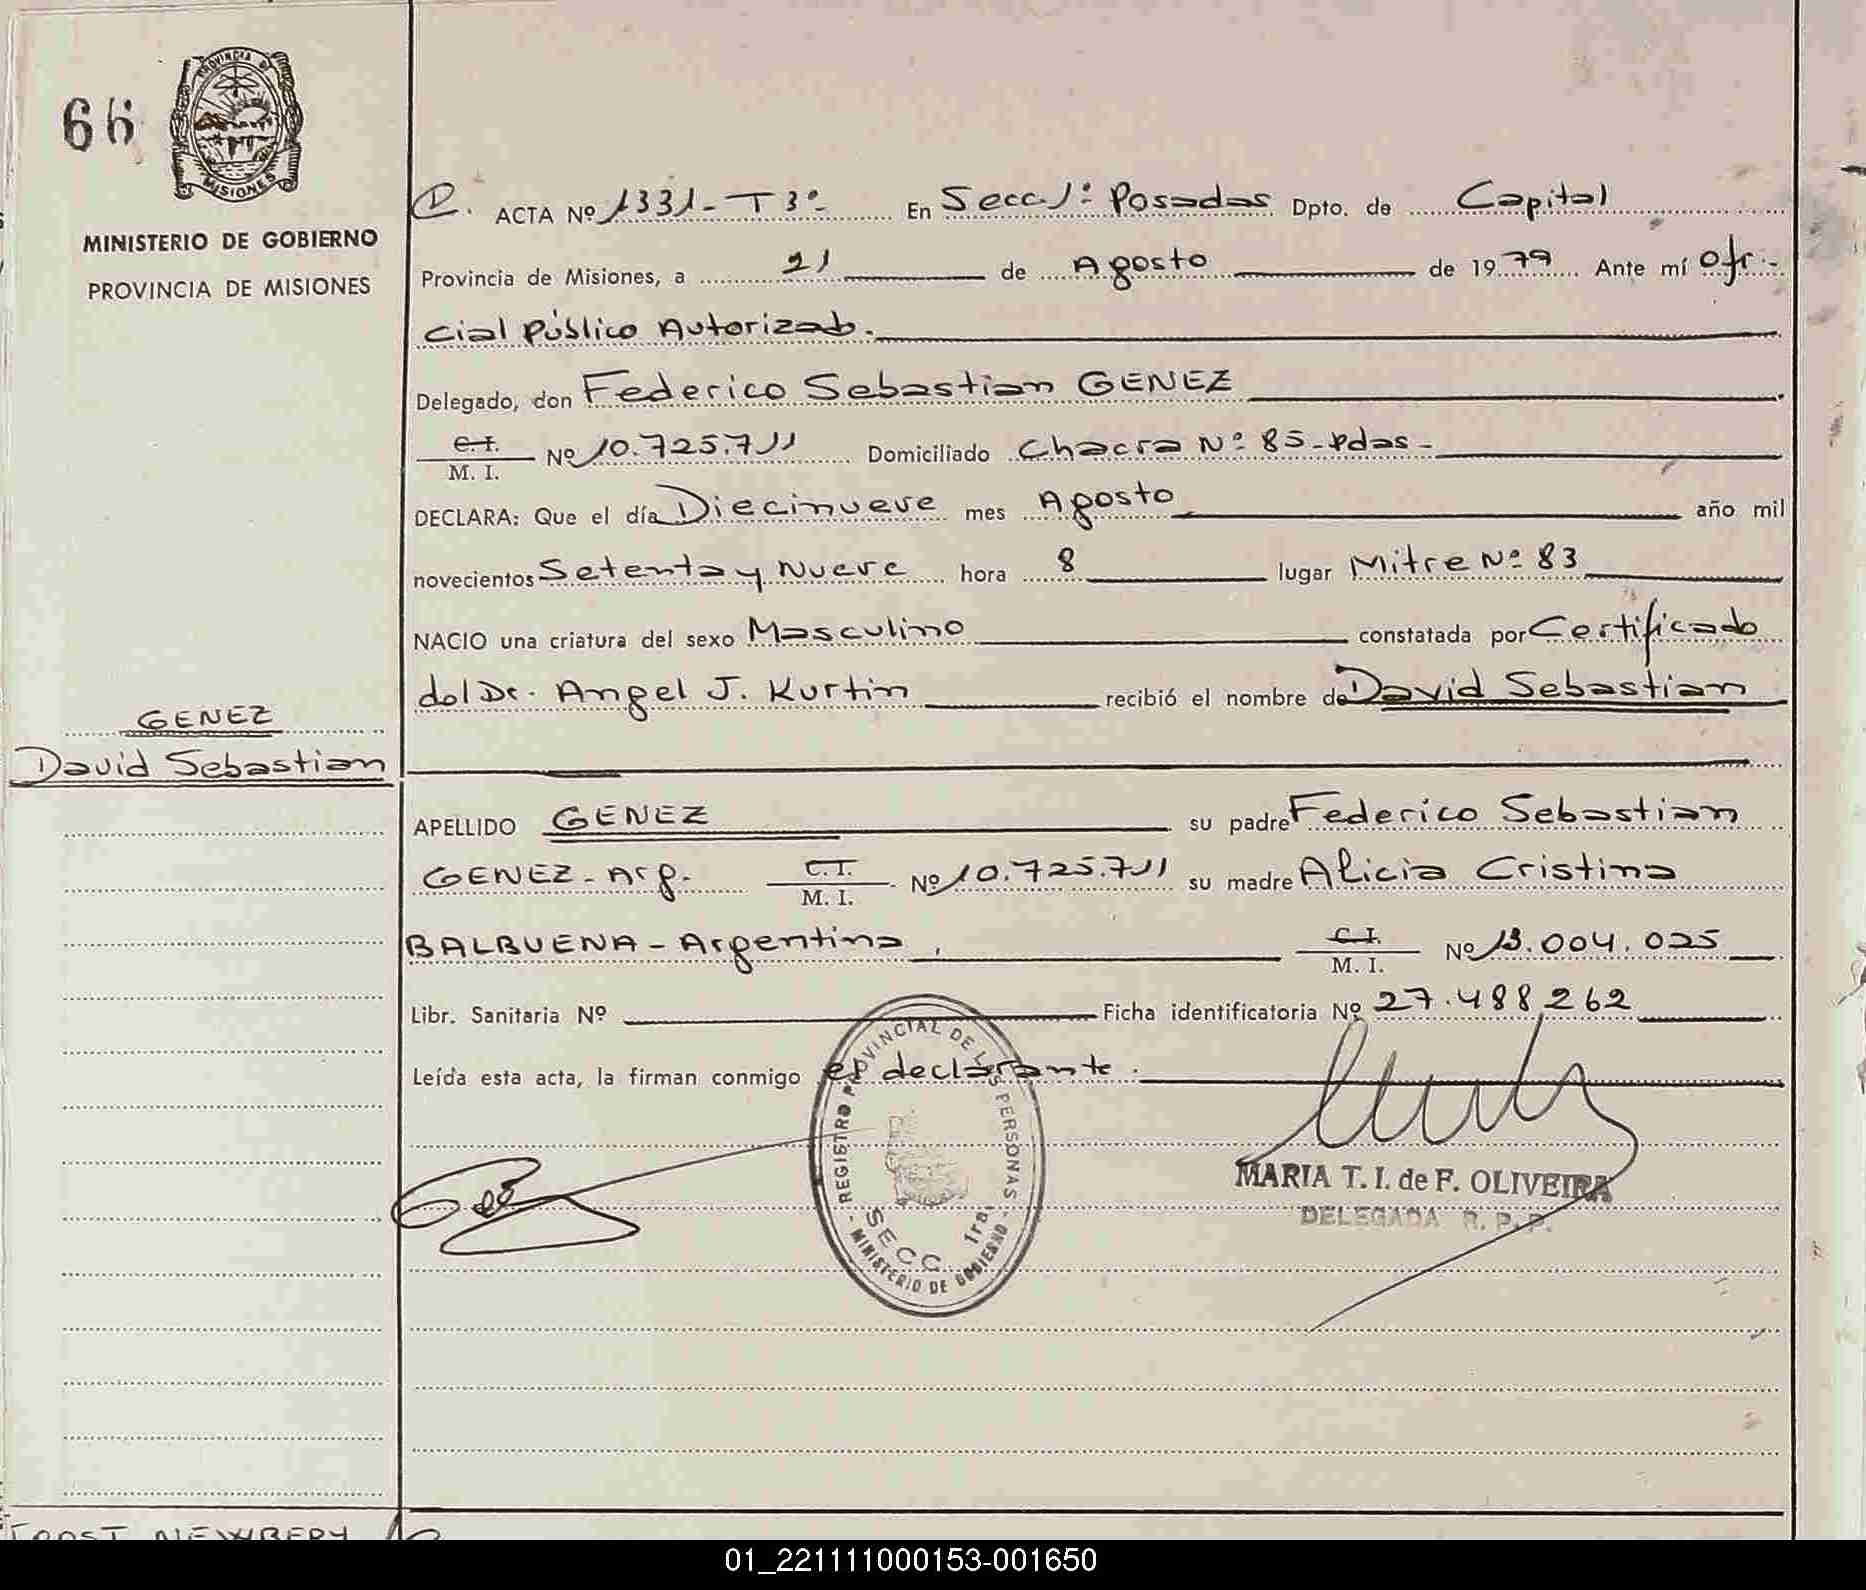 66
PROVINCIA DE
MISIONES
MINISTERIO DE GOBIERNO
PROVINCIA DE MISIONES
GENEZ
David Sebastian
D. ACTA Nº 1331-T3º- En Secc 1ª Posadas Dpto. de Capital
Provincia de Misiones, a 21 de Agosto de 1979 Ante mí Ofi-
cial Público Autorizado.
Delegado, don Federico Sebastian GENEZ
C.I. M. I. Nº 10.725.711 Domiciliado Chacra Nº 85-Pdas-
DECLARA: Que el día Diecinueve mes Agosto año mil
novecientos Setenta y Nueve hora 8 lugar Mitre Nº 83
NACIO una criatura del sexo Masculino constatada por Certificado
del Dr. Angel J. Kurtin recibió el nombre de David Sebastian
APELLIDO GENEZ su padre Federico Sebastian
GENEZ-Arg. C.I. M. I. Nº 10.725.711 su madre Alicia Cristina
BALBUENA-Argentina, C.I. M. I. Nº 13.004.025
Libr. Sanitaria Nº Ficha identificatoria Nº 27.488.262
Leída esta acta, la firman conmigo el declarante.
REGISTRO PROVINCIAL DE LAS PERSONAS
SECC 1ra.
- MINISTERIO DE GOBIERNO -
MARIA T. I. de F. OLIVEIRA
DELEGADA R. P. P.
NEWBERY
01_221111000153-001650